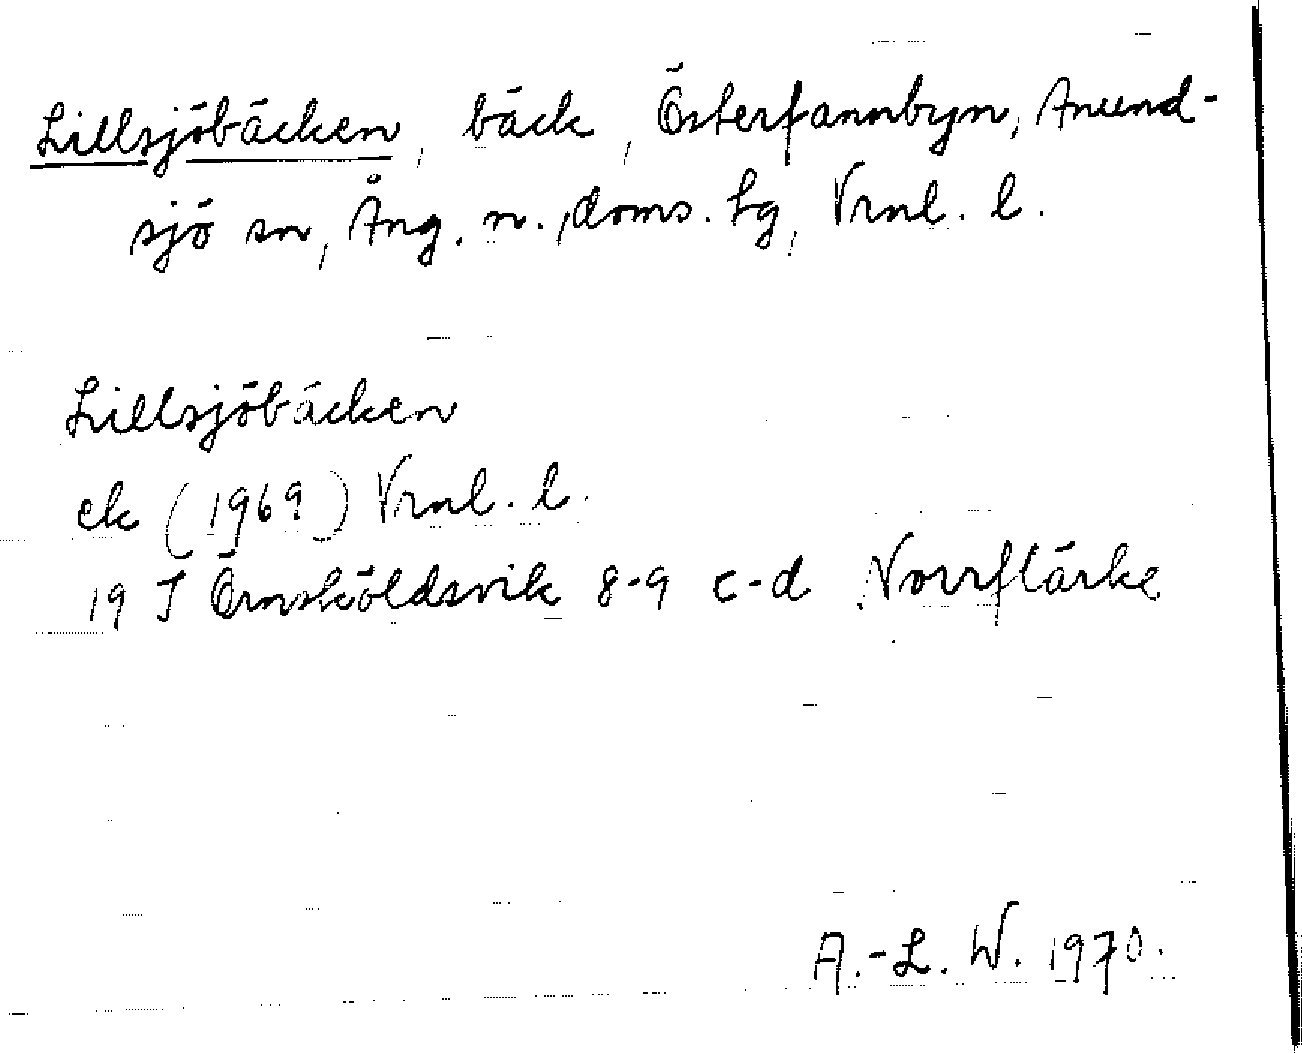 Lillsjöbäcken, bäck, Österfannbyn, Anund-
sjö sn, Ång. n., doms. lg, Vrnl. l.
Lillsjöbäcken
ek (1969) Vrnl. l.
19 J Örnsköldsvik 8-9 c-d Norrflärke
A.-L. W. 1970.